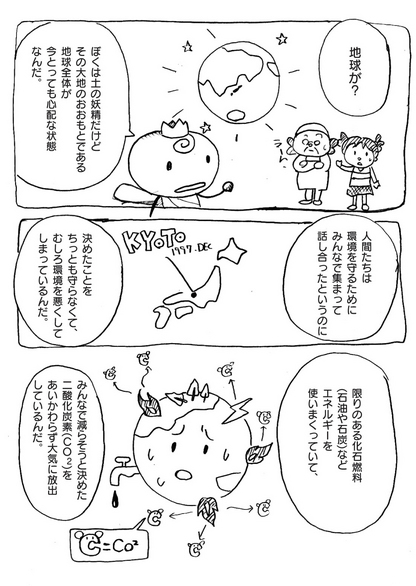 地球が?
ぼくは土の妖精だけど
その大地のおおもとである
地球全体が
今とっても心配な状態
なんだ。
うーん
人間たちは
環境を守るために
みんなで集まって
話し合ったというのに
KYOTO
1997.DEC
決めたことを
ちっとも守らなくて、
むしろ環境を悪くして
しまっているんだ。
限りのある化石燃料
(石油や石炭)など
エネルギーを
使いまくっていて、
みんなで減らそうと決めた
二酸化炭素(CO²)を
あいかわらず大気に放出
しているんだ。
C
C
C
C
C
C
C
C=CO²